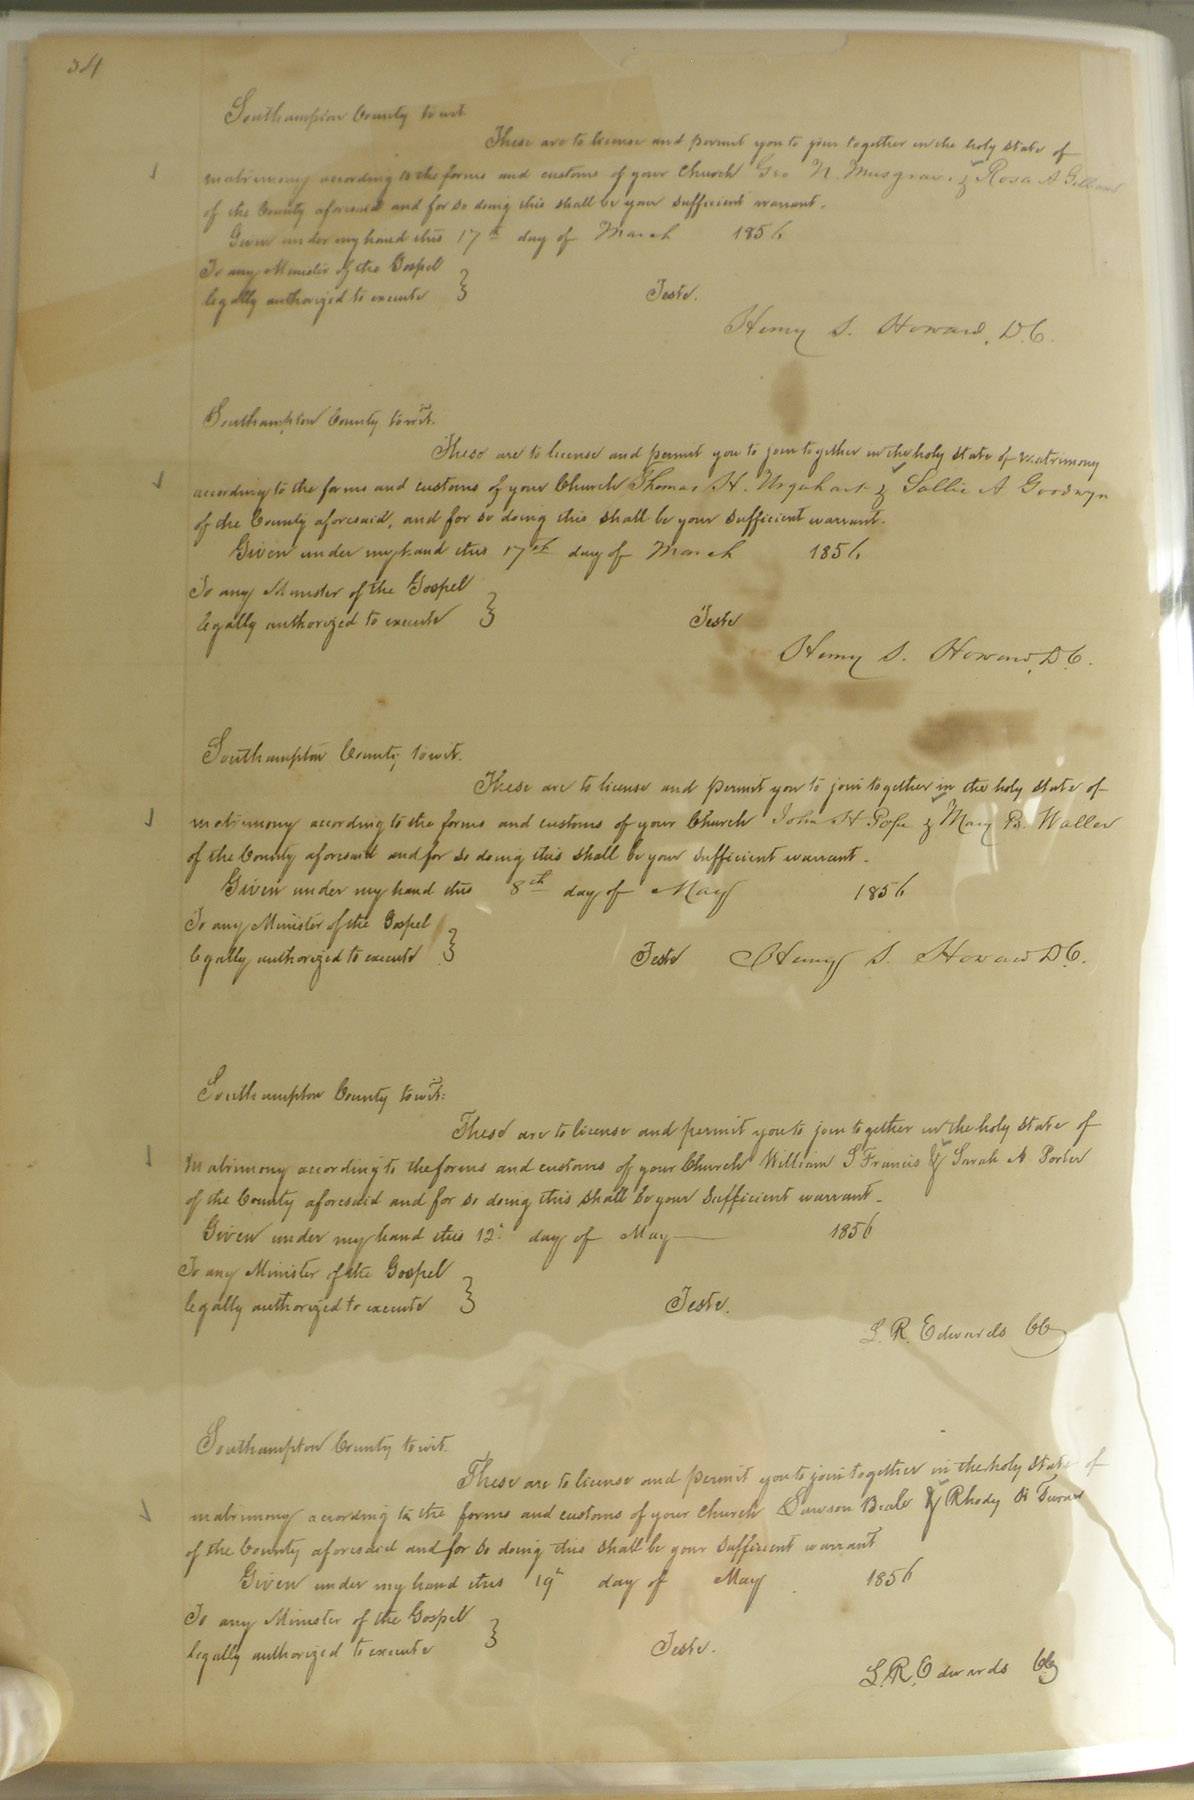 34
Southampton County to wit.
These are to license and permit you to join together in the holy state of
matrimony according to the forms and customs of your Church Geo N. Musgrave & Rosa A
of the County aforesaid and for so doing this shall be your sufficient warrant.
Given under my hand this 17th day of March 1856
To any Minister of the Gospel
legally authorized to execute } Teste.
Henry S. Howard, D.C.
Southampton County to wit.
These are to license and permit you to join together in the holy state of matrimony
according to the forms and customs of your Church Thomas H. Urquhart & Sallie A Goodwyn
of the County aforesaid, and for so doing this shall be your sufficient warrant.
Given under my hand this 17th day of March 1856
To any Minister of the Gospel
legally authorized to execute } Teste
Henry S. Howard, D.C.
Southampton County to wit.
These are to license and permit you to join together in the holy state of
matrimony according to the forms and customs of your Church John H Pope & Mary B. Waller
of the County aforesaid and for so doing this shall be your sufficient warrant.
Given under my hand this 8th day of May 1856
To any Minister of the Gospel
legally authorized to execute } Teste Henry S. Howard D.C.
Southampton County to wit:
These are to license and permit you to join together in the holy state of
Matrimony according to the forms and customs of your Church William S Francis & Sarah A. Porter
of the County aforesaid and for so doing this shall be your sufficient warrant.
Given under my hand this 12th day of May 1856
To any Minister of the Gospel
legally authorized to execute } Teste.
L. R. Edwards CC
Southampton County to wit.
These are to license and permit you to join together in the holy state of
matrimony according to the forms and customs of your Church Lawson Beale & Rhody
of the County aforesaid and for so doing this shall be your sufficient warrant
Given under my hand this 19th day of May 1856
To any Minister of the Gospel
legally authorized to execute } Teste.
L. R. Edwards CC